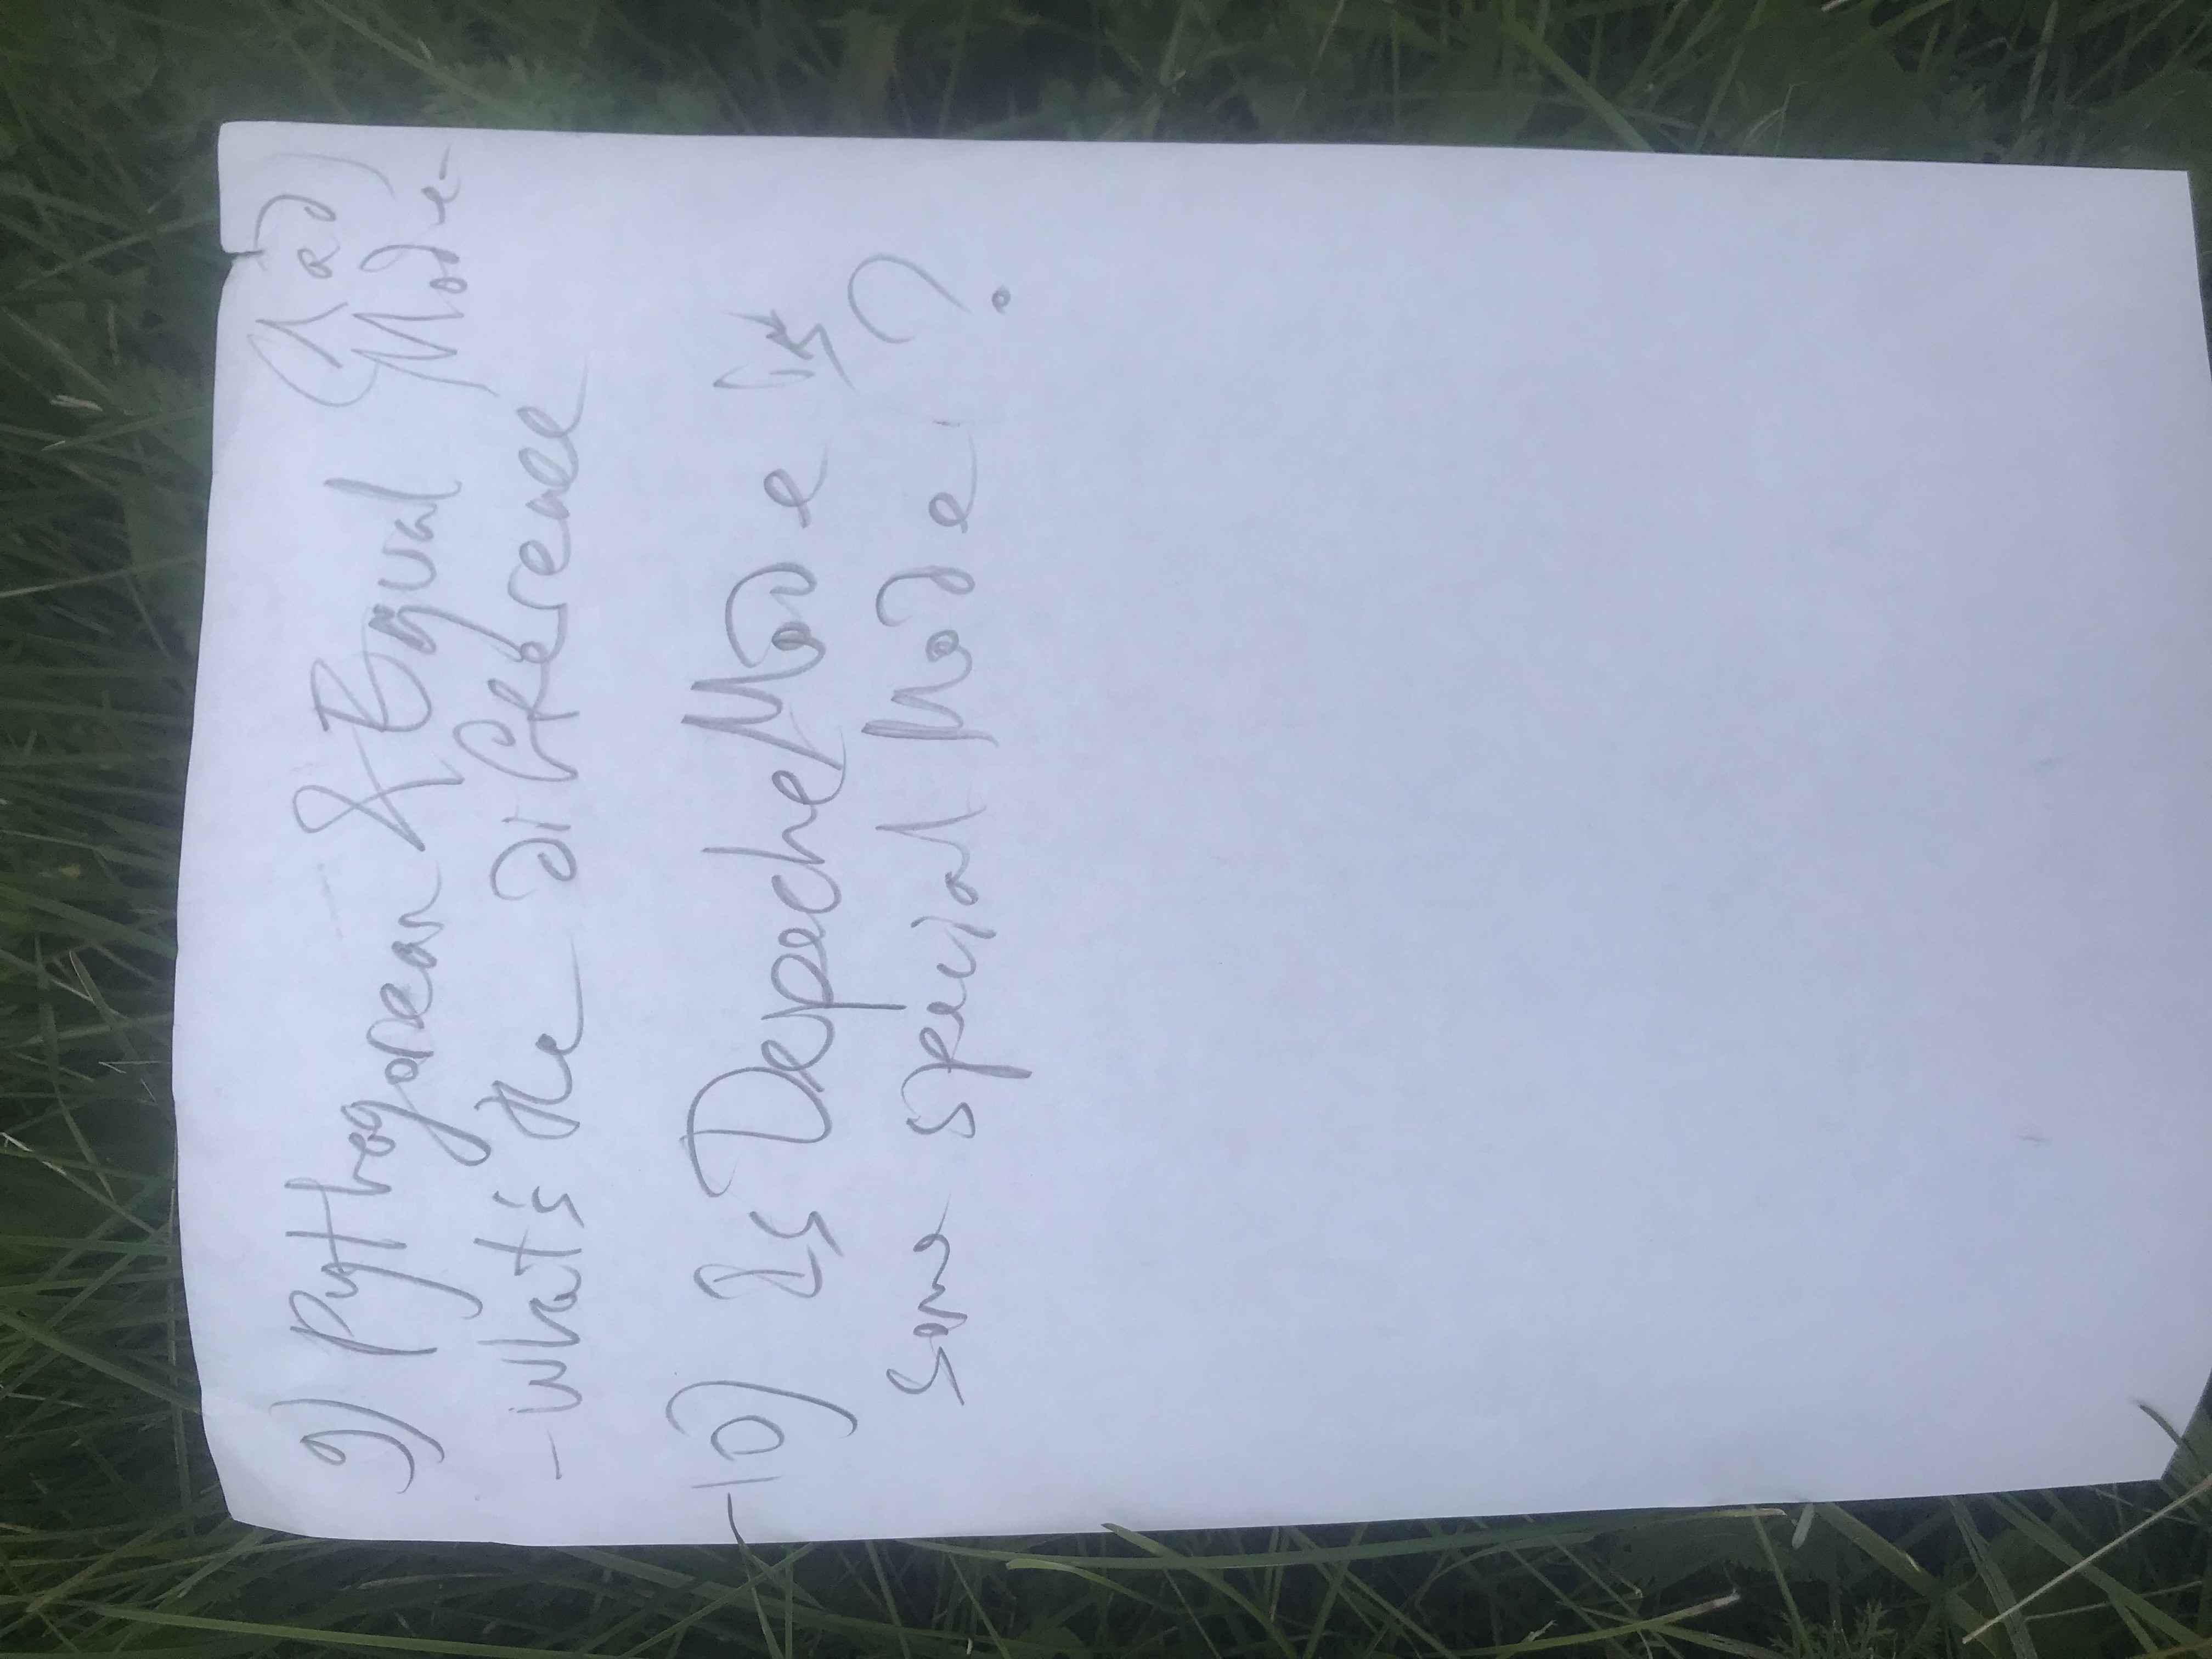 9) Pythagorean & Equal Mode
- what's the difference
10) Is Depeche Mode is
some special Mode ?